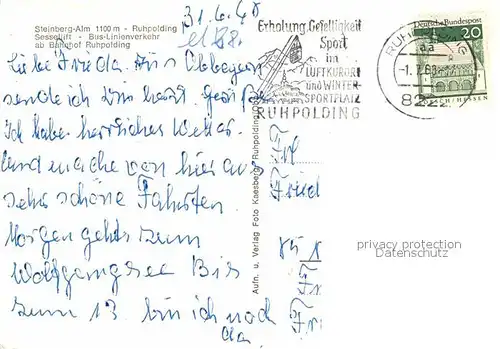 Steinberg-Alm 1100 m - Ruhpolding
Sessellift - Bus-Linienverkehr
ab Bahnhof Ruhpolding
31.6.68
Liebe Frieda. Aus Obbayern
sende ich Dir herzl. Grüße
Ich habe herrliches Wetter
und mache von hier aus
sehr schöne Fahrten.
Morgen gehts zum
Wolfgangsee Bis
zum 13. bin ich noch
da.
Aufn. u. Verlag Foto Kaesberg Ruhpolding
Erholung, Geselligkeit
Sport
im
LUFTKURORT
UND WINTER-
SPORTPLATZ
RUHPOLDING
Deutsche Bundespost
20
LORSCH/HESSEN
RUHPOLDING
aa
-1.7.68
82
Frl
privacy protection
Datenschutz